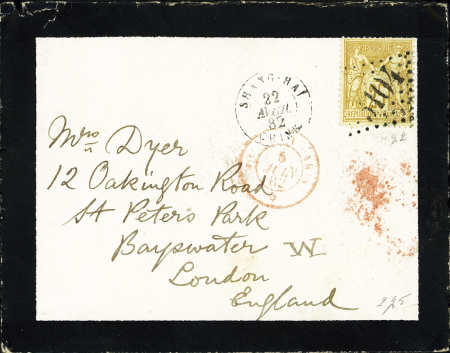 POSTE
SHANG-HAI
22
AVRIL
82
CHINE
5104
Mrs Dyer
12 Oakington Road
St Peters Park
Bayswater W
London
England